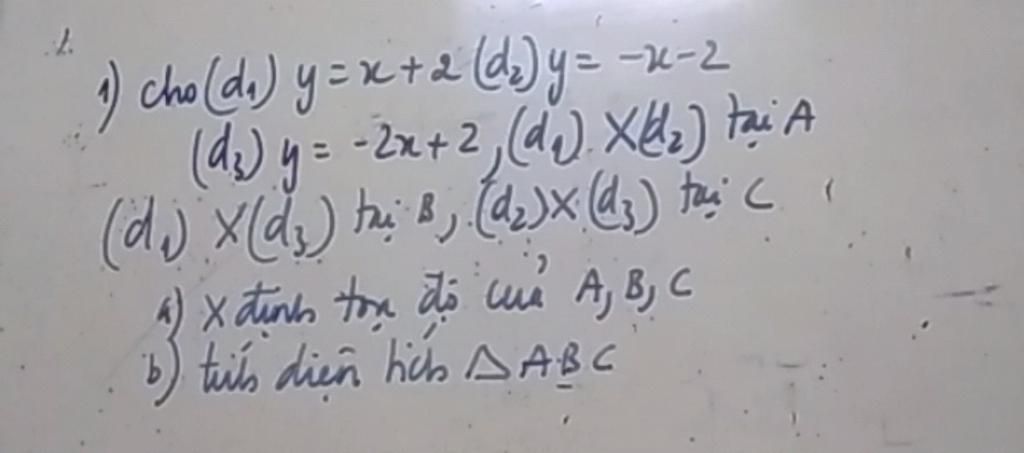 1) cho (d₁) y = x + 2 (d₂) y = -x - 2
(d₃) y = -2x + 2, (d₁) X (d₂) tại A
(d₁) X (d₃) tại B, (d₂) X (d₃) tại C
a) X định tọa độ của A, B, C
b) tính diện tích △ ABC